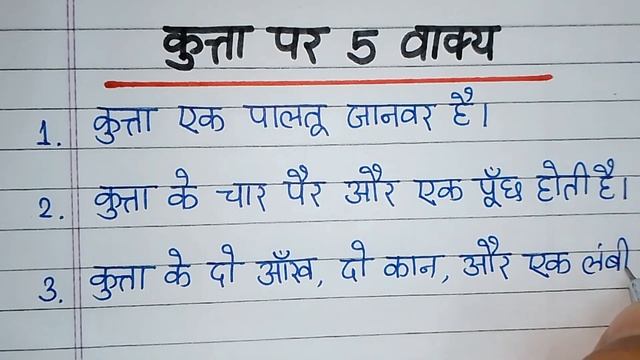 कुत्ता पर 5 वाक्य
1. कुत्ता एक पालतू जानवर है।
2. कुत्ता के चार पैर और एक पूँछ होती है।
3. कुत्ता के दो आँख, दो कान, और एक लंबी